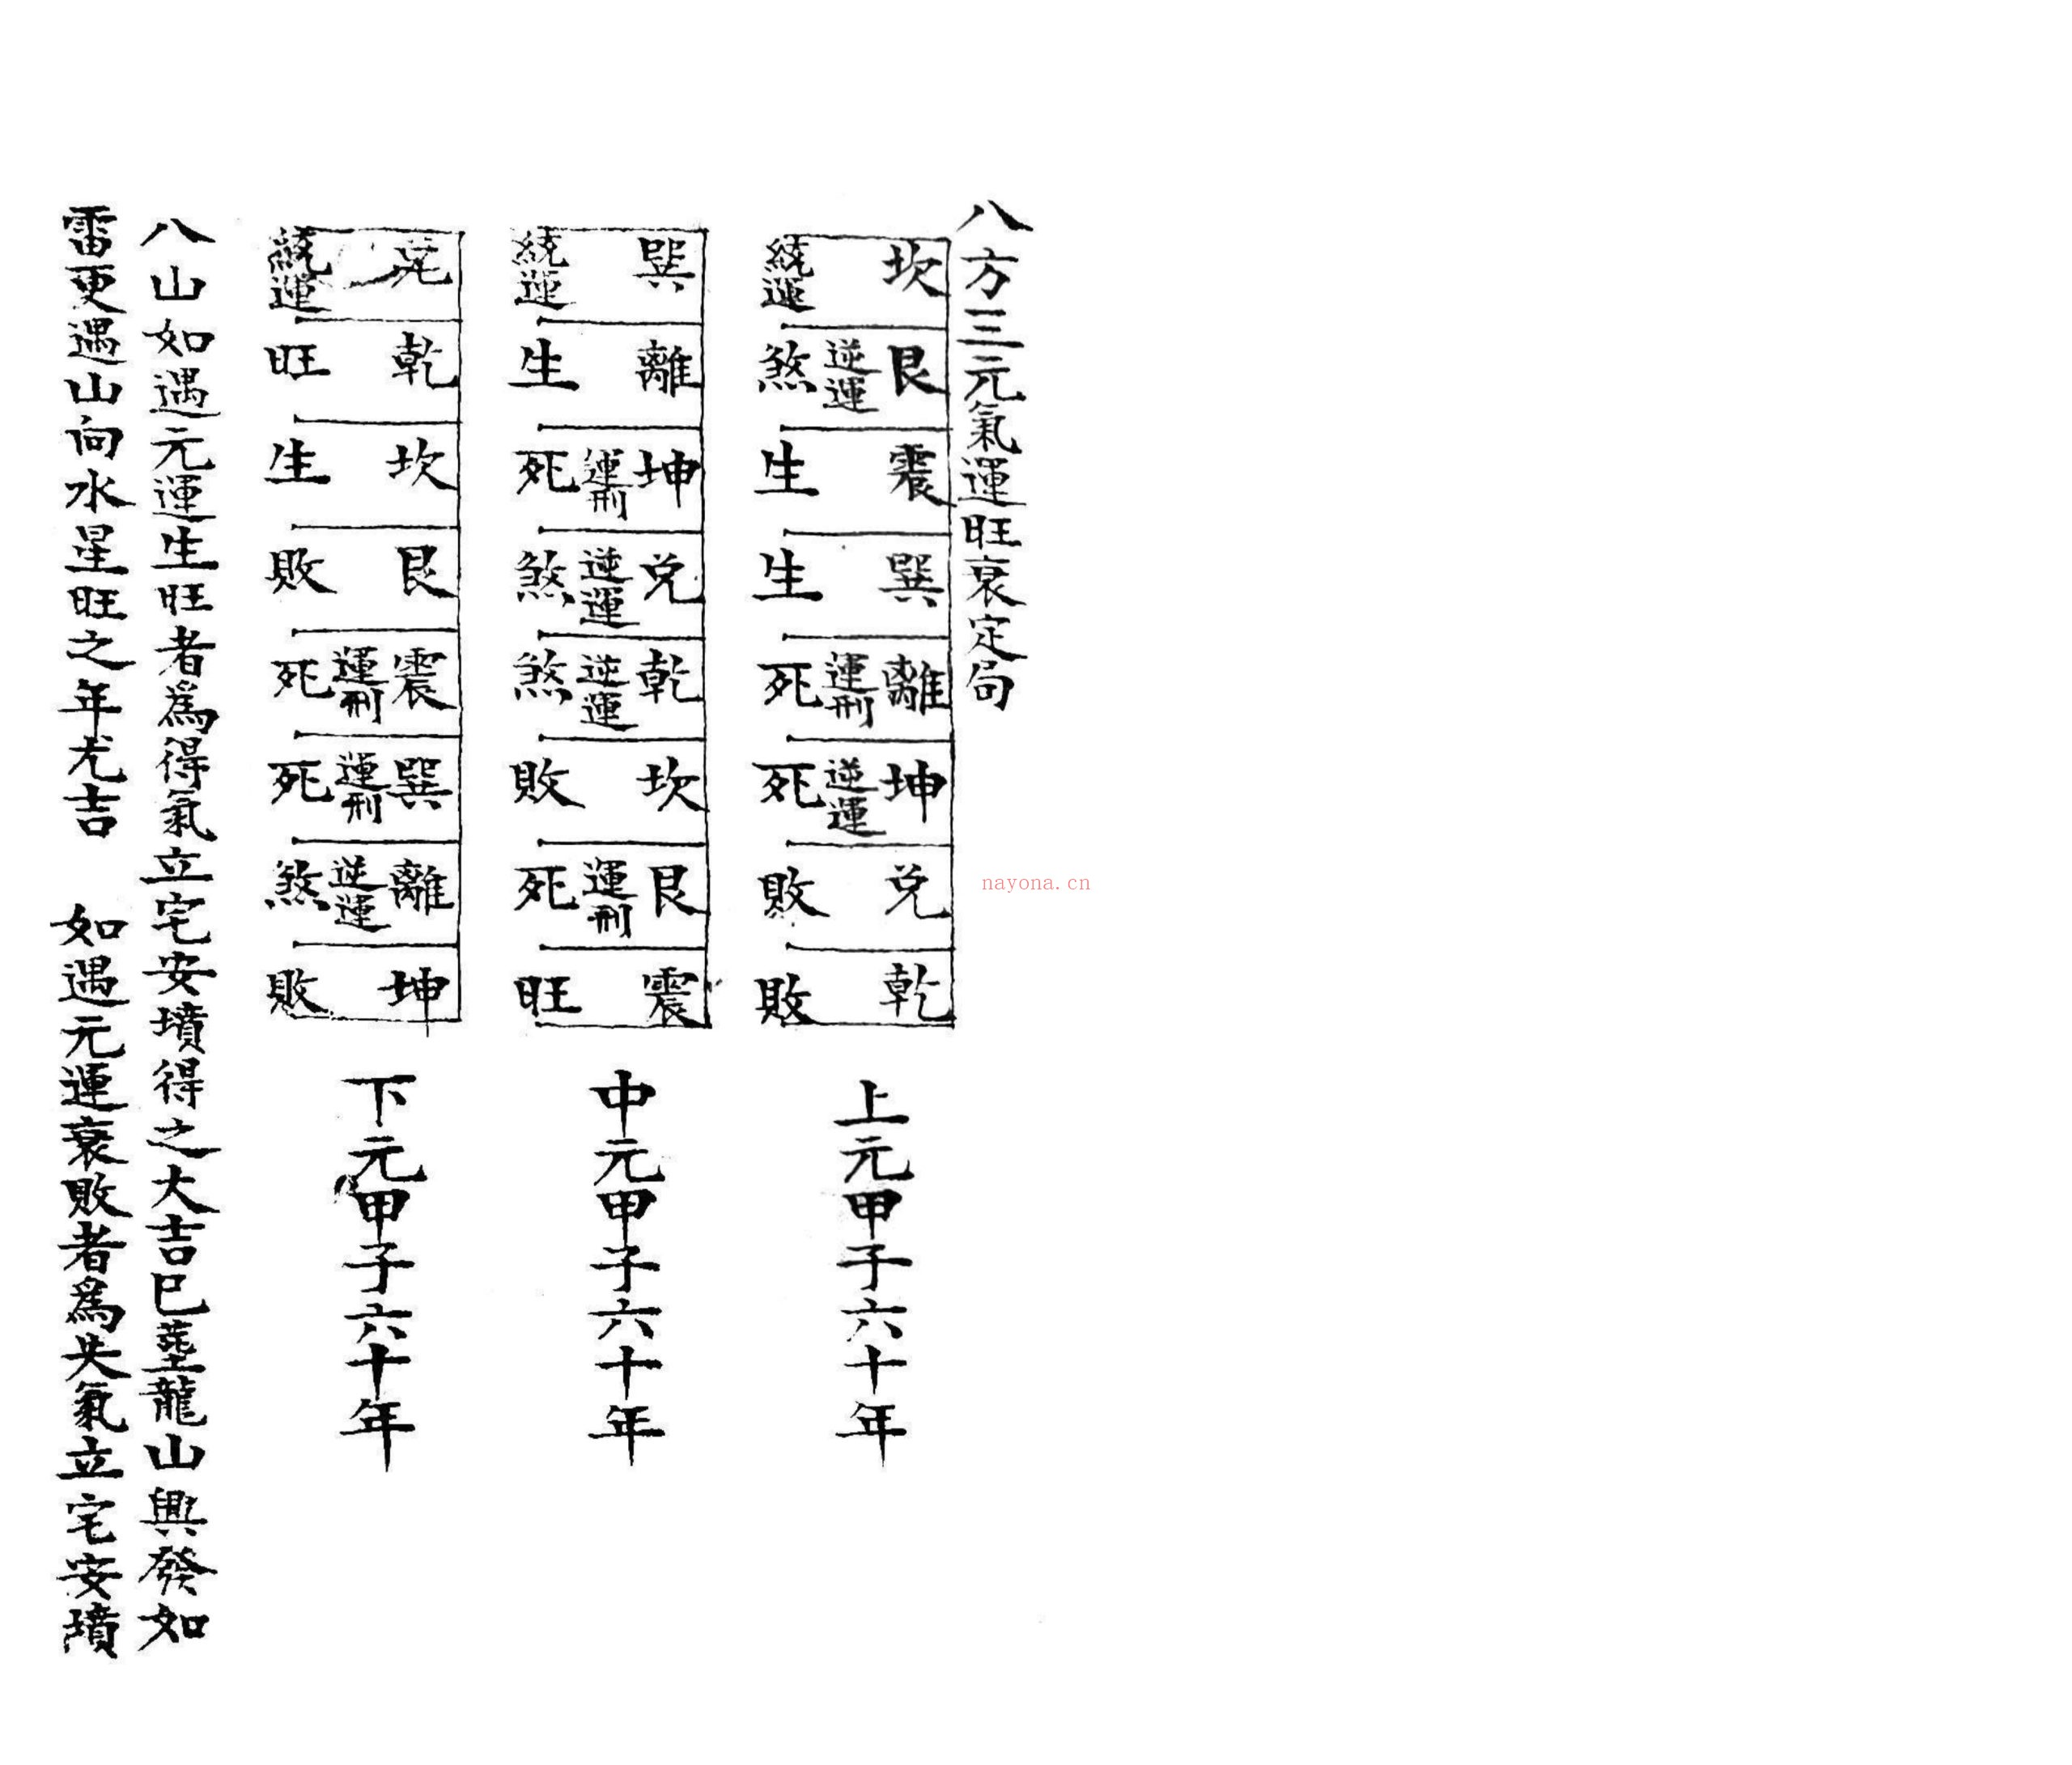 八方三元氣運旺衰定局
坎 統運
艮 逆運 煞
震 生
巽 生
離 運刑 死
坤 逆運 死
兌 敗
乾 敗
上元甲子六十年
巽 統運
離 生
坤 運刑 死
兌 逆運 煞
乾 逆運 煞
坎 敗
艮 運刑 死
震 旺
中元甲子六十年
兌 統運
乾 旺
坎 生
艮 敗
震 運刑 死
巽 運刑 死
離 逆運 煞
坤 敗
下元甲子六十年
八山如遇元運生旺者為得氣立宅安墳得之大吉巳塟龍山興發如
雷更遇山向水星旺之年尤吉 如遇元運衰敗者為失氣立宅安墳
nayona.cn